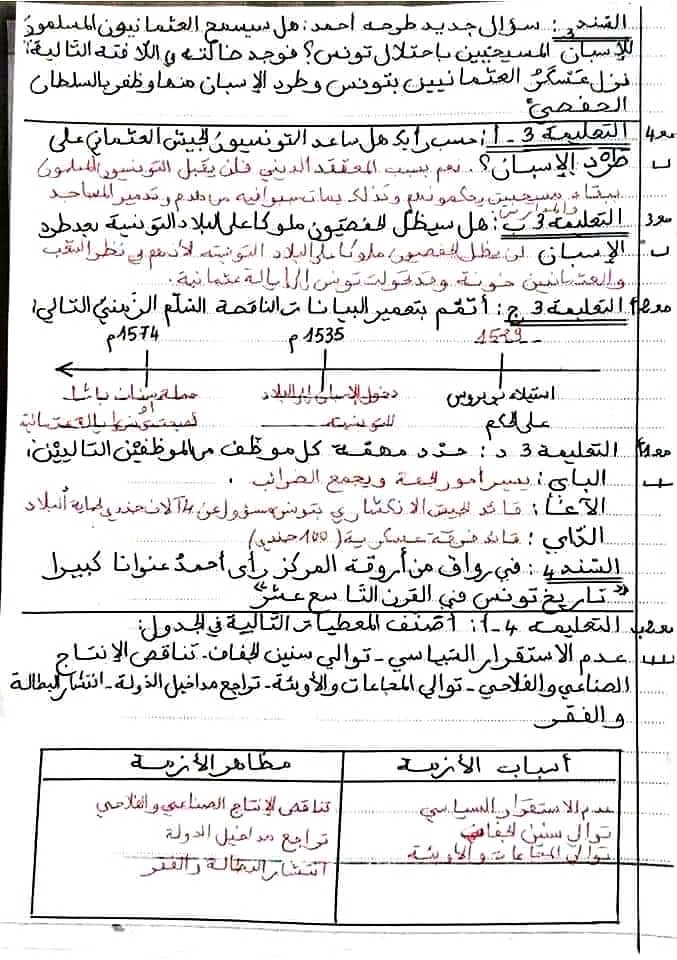 السّند 3: سؤال جديد طرحه أحمد: هل سيسمح العثمانيون المسلمون
للإسبان المسيحيين باحتلال تونس؟ فوجد ضالّته في اللافتة التالية:
نزل عسكر العثمانيين بتونس وطرد الإسبان منها وظفر بالسلطان
الحفصيّ
مع4 التعليمة 3 - أ: حسب رأيك هل ساعد التونسيون الجيش العثماني على
طرد الإسبان؟. نعم بسبب المعتقد الديني فلن يقبل التونسيون المسلمون
ببقاء مسيحيين يحكمونهم وتدمير المساجد
والمدارس
مع3 التعليمة 3 ب: هل سيظلّ الحفصيّون ملوكا على البلاد التونسية بعد طرد
الإسبان لن يظل الحفصيون ملوكا على البلاد التونسية لأنهم في نظر الشعب
والعثمانيين خونة وقد تحولت تونس إلى إيالة عثمانية.
التعليمة 3 ج: أتمّم بتعمير البيانات الناقصة السّلّم الزّمنيّ التالي:
1529 1535م 1574م
استيلاء دخول الإسبان إلى البلاد حملة سنان باشا
على الحكم التونسية أو
التعليمة 3 د: حدّد مهمّة كلّ موظّف من الموظّفين التاليين:
الباي: يسير أمور ويجمع الضرائب.
الآغا: قائد الجيش الانكشاري بتونس مسؤول عن 4 آلاف جندي لحماية البلاد
الدّاي: قائد فرقة عسكرية (100 جندي)
السّند 4: في رواق من أروقة المركز رأى أحمد عنوانا كبيرا
"تاريخ تونس في القرن التاسع عشر"
التعليمة 4-أ: أصنّف المعطيات التالية في الجدول:
عدم الاستقرار السّياسي - توالي سنين الجفاف - تناقص الإنتاج
الصناعي والفلاحي - توالي المجاعات والأوبئة - تراجع مداخيل الدولة - انتشار البطالة
والفقر
أسباب الأزمة مظاهر الأزمة
عدم الاستقرار السياسي تناقص الإنتاج الصناعي والفلاحي
توالي سنين الجفاف تراجع مداخيل الدولة
توالي المجاعات والأوبئة انتشار البطالة والفقر